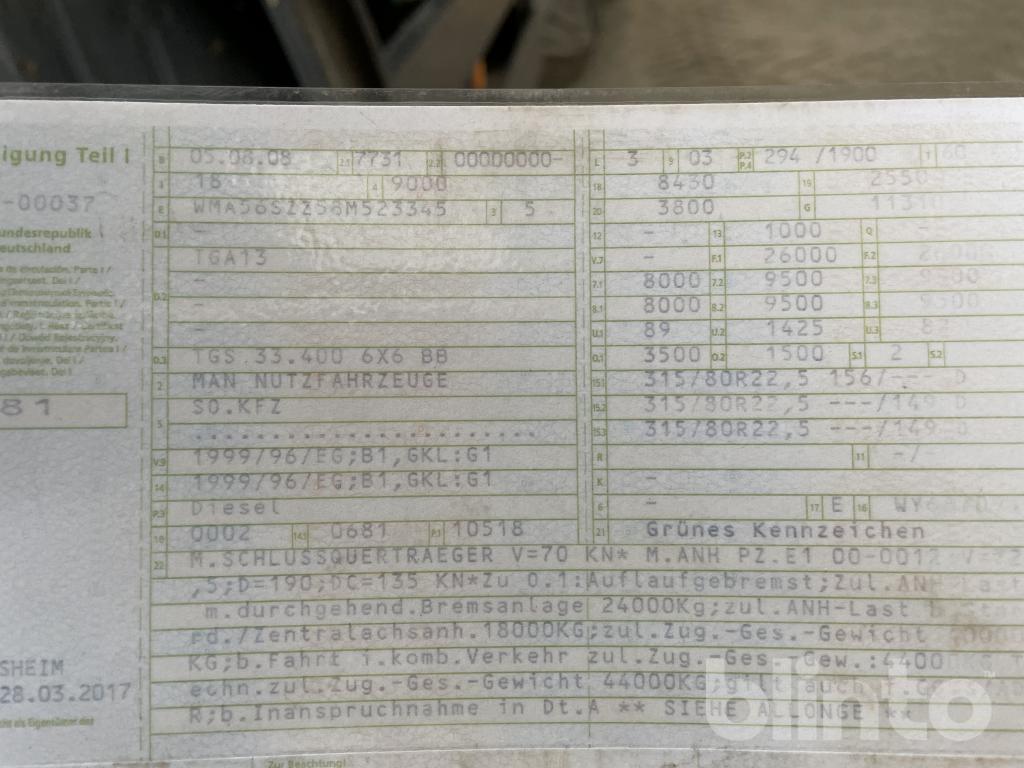 igung Teil I
-00037
undesrepublik
eutschland
81
SHEIM
28.03.2017
B 05.08.08 2.1 7731 2.2 00000000-
J 18 4 9000
E WMA56SZZ58M523345 3 5
D.1 -
TGA13
D.2 -
-
D.3 TGS 33.400 6X6 BB
2 MAN NUTZFAHRZEUGE
5 SO.KFZ
V.9 1999/96/EG;B1,GKL:G1
14 1999/96/EG;B1,GKL:G1
P.3 Diesel
10 0002 14.1 0681 P.1 10518
L 3 9 03 P.2 P.4 294 /1900 T 60
18 8430 19 2550
20 3800 G 11310
12 - 13 1000 Q -
V.7 - F.1 26000 F.2 26000
7.1 8000 7.2 9500 7.3 9500
8.1 8000 8.2 9500 8.3 9500
U.1 89 U.2 1425 U.3 82
O.1 3500 O.2 1500 S.1 2 S.2
15.1 315/80R22,5 156/--- D
15.2 315/80R22,5 ---/149 D
15.3 315/80R22,5 ---/149 D
R 11 -/-
K -
6 - 17 E 16
21 Grünes Kennzeichen
22 M.SCHLUSSQUERTRAEGER V=70 KN* M.ANH PZ.E1 00-0012 V=72
,5;D=190;DC=135 KN*Zu 0.1:Auflaufgebremst;Zul.ANH-Last
m.durchgehend.Bremsanlage 24000Kg;zul.ANH-Last b.Star
rd./Zentralachsanh.18000KG;zul.Zug.-Ges.-Gewicht
KG;b.Fahrt i.komb.Verkehr zul.Zug.-Ges.-Gew.:44000KG T
echn.zul.Zug.-Ges.-Gewicht 44000KG;gilt auch f.
R;b.Inanspruchnahme in Dt.A ** SIEHE ALLONGE **
Zur Beachtung!
blinto